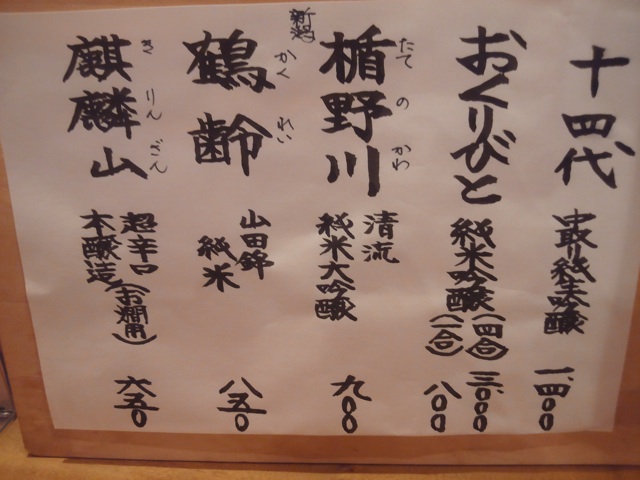 十四代
中取り純米吟醸
一、四〇〇
おくりびと
純米吟醸(四合)
三、〇〇〇
(一合)
八〇〇
楯野川
たてのかわ
清流
純米大吟醸
九〇〇
新潟
鶴齢
かくれい
山田錦
純米
八五〇
麒麟山
きりんざん
超辛口
本醸造(お燗用)
六五〇